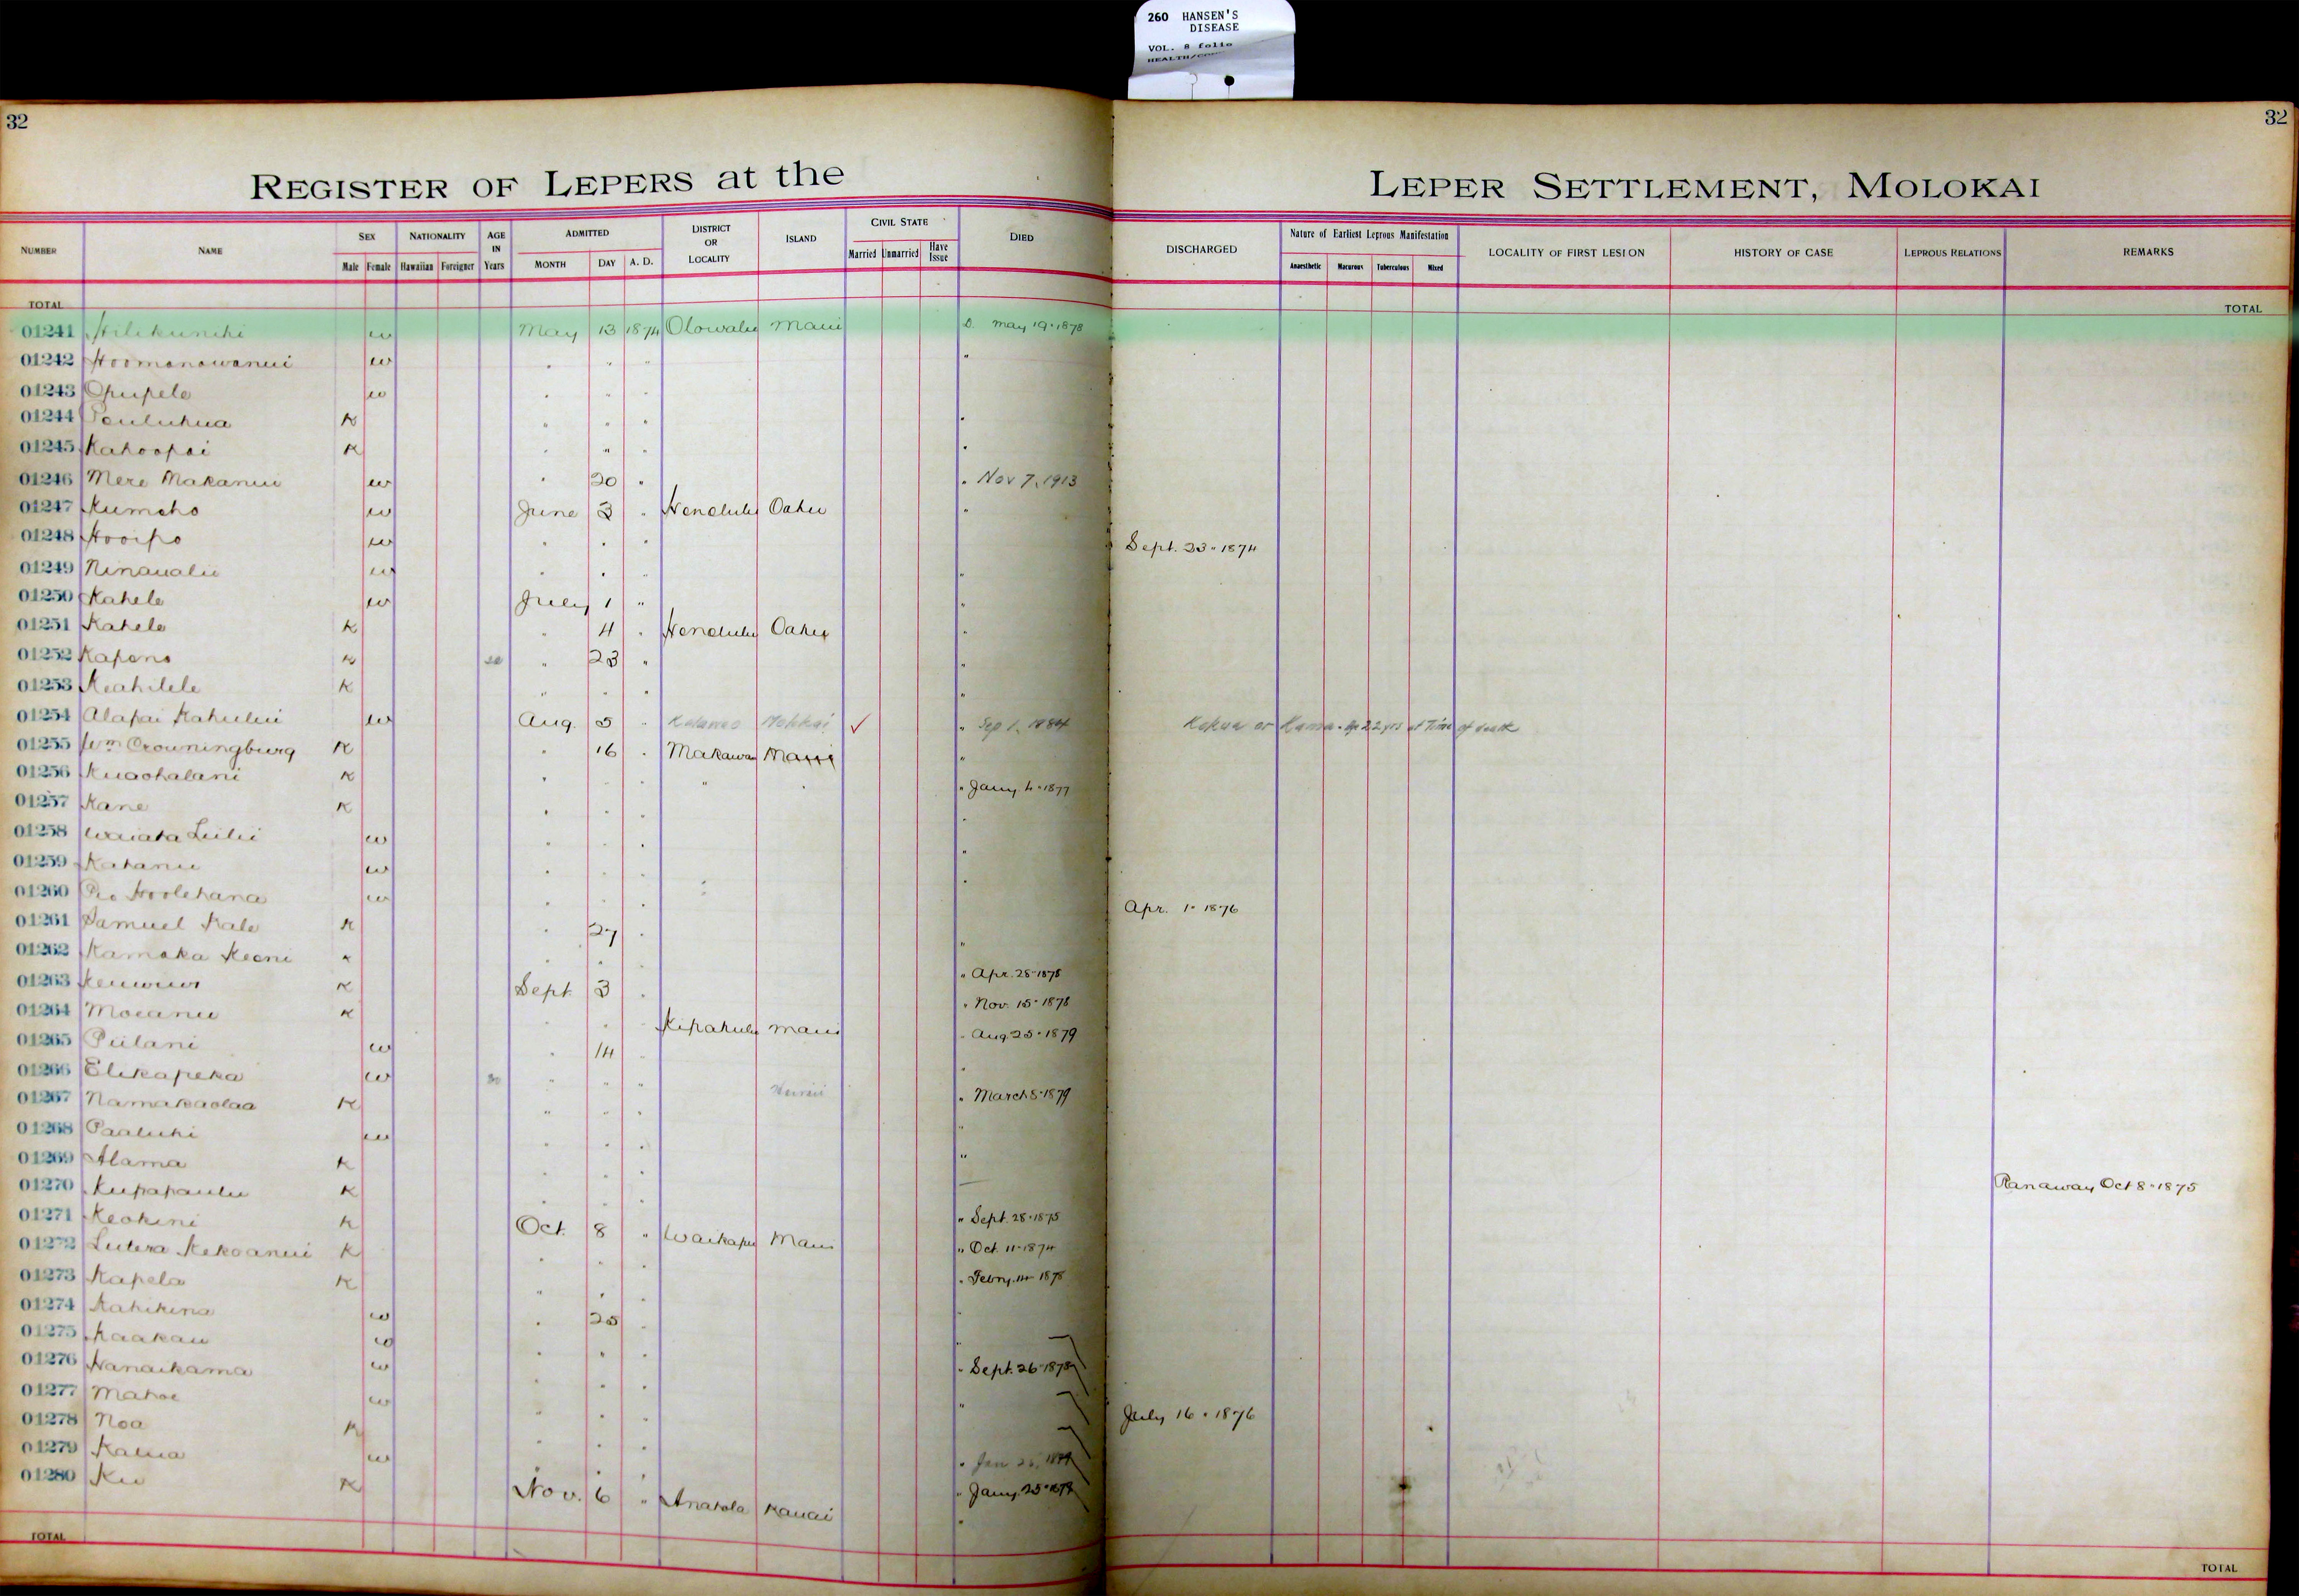 260 HANSEN'S
DISEASE
VOL. 8 folio
32
32
REGISTER OF LEPERS at the LEPER SETTLEMENT, MOLOKAI
NUMBER NAME SEX NATIONALITY AGE IN Years ADMITTED DISTRICT OR LOCALITY ISLAND CIVIL STATE DIED DISCHARGED Nature of Earliest Leprous Manifestation LOCALITY OF FIRST LESION HISTORY OF CASE LEPROUS RELATIONS REMARKS
Male Female Hawaiian Foreigner MONTH DAY A. D. Married Unmarried Have Issue Anaesthetic Macurous Tuberculous Mixed
TOTAL TOTAL
01241 Hilikunihi w May 13 1874 Olowalu Maui D. May 19 · 1878
01242 Hoomanawanui w " " " "
01243 Opupele w " " "
01244 Pauluhua K " " " "
01245 Kahoopai K " " " "
01246 Mere Makanui w " 20 " " Nov 7, 1913
01247 Kumeho w June 3 " Honolulu Oahu "
01248 Hooipo w " " " Sept. 23 · 1874
01249 Ninaualu w " " " "
01250 Kahele w July 1 " "
01251 Kahele K " 4 " Honolulu Oahu "
01252 Kapena K " 23 " "
01253 Keahilele K " " " "
01254 Alapai Kahului w Aug. 5 " Kalawao Molokai ✓ " Sep 1, 1884 Kokua or Kamaa. Age 22 yrs at Time of death
01255 Wm Crowningburg K " 16 " Makawao Maui "
01256 Kuaohalani K " " " " " " Jany 4 · 1877
01257 Kane K " " " "
01258 Waiaka Luilii w " " " "
01259 Kahanu w " " " "
01260 Pio Hoolehana w " " " Apr. 1 · 1876
01261 Samuel Kale K " 27 " "
01262 Kamaka Keoni K " " " " Apr. 28 · 1878
01263 Keuwus K Sept 3 " " Nov. 15 · 1878
01264 Moeanu K " " " Kipahulu Maui " Aug 25 · 1879
01265 Piilani w " 14 " "
01266 Elikapeka w 30 " " " Hawaii " March 8 · 1879
01267 Namakaolaa K " " " "
01268 Paaluhi w " " " "
01269 Alama K " " "
01270 Kupapaulu K " " " Ranaway Oct 8 · 1875
01271 Keokini K Oct. 8 " Waikapu Maui " Sept. 28 · 1875
01272 Lutera Kekoanui K " " " " Oct. 11 · 1874
01273 Kapela K " " " " Febry. 14 · 1878
01274 Kahikina w " 25 " "
01275 Kaakau w " " " "
01276 Nanaikama w " " " " Sept. 26 · 1878
01277 Mahoe w " " " "
01278 Noa K " " " July 16 · 1876
01279 Kalua w " " " " Jan 26, 1879
01280 Ku K Nov. 6 " Anahola Kauai " Jany. 25 · 1879
TOTAL TOTAL